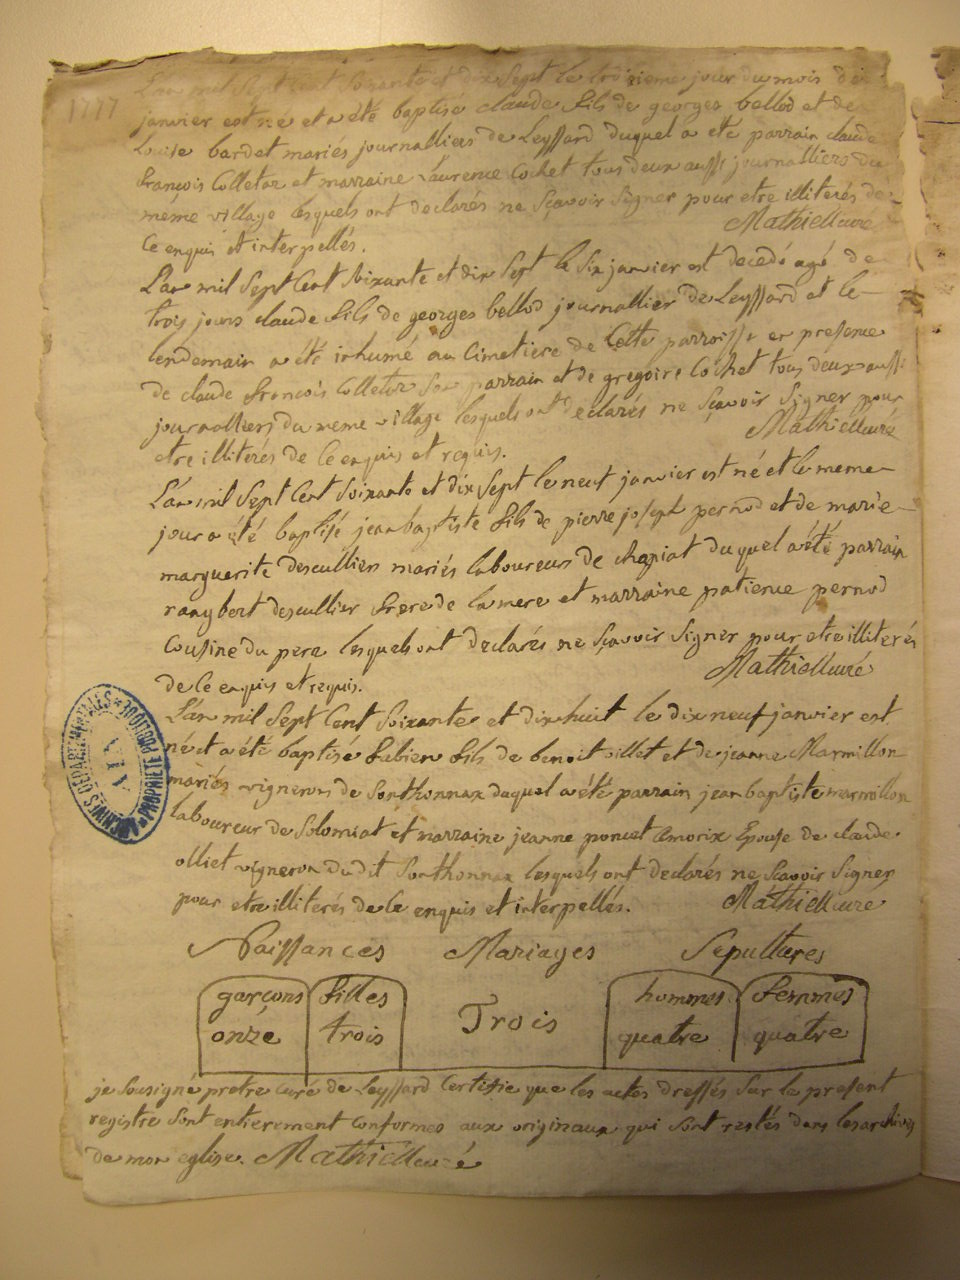 1777
L'an mil Sept Cent Soixante et dix Sept le troisieme jour du mois de
janvier est né et a été baptisé claude fils de georges bellod et de
Louise bardet mariés journalliers de Leyssard duquel a été parrain claude
françois Colletaz et marraine Laurence Cochet tous deux aussi journalliers du
meme village lesquels ont declarés ne Sçavoir Signer pour etre illiterés de
Ce enquis et interpellés. Mathieu curé
L'an mil Sept Cent Soixante et dix Sept le Six janvier est decedé agé de
trois jours claude fils de georges bellod journallier de Leyssard et le
lendemain a été inhumé au Cimetiere de Cette parroisse en presence
de claude françois Colletaz Son parrain et de gregoire Cochet tous deux aussi
journalliers du meme village lesquels ont declarés ne Sçavoir Signer pour
etre illiterés de Ce enquis et requis. Mathieu curé
L'an mil Sept Cent Soixante et dix Sept le neuf janvier est né et le meme
jour a été baptisé jean baptiste fils de pierre joseph pernod et de marie
marguerite descullien mariés laboureurs de chapiat duquel a été parrain
descullier frere de la mere et marraine patience pernod
Cousine du pere lesquels ont declarés ne Sçavoir Signer pour etre illiterés
de Ce enquis et requis. Mathieu curé
L'an mil Sept Cent Soixante et dix huit le dix neuf janvier est
né et a été baptisé fabien fils de benoit et de jeanne Marmillon
mariés vignerons de Sonthonnax duquel a été parrain jean baptiste marmillon
laboureur de Solomiat et marraine jeanne poncet Epouse de claude
olliet vigneron dudit Sonthonnax lesquels ont declarés ne Sçavoir Signer
pour etre illiterés de Ce enquis et interpellés. Mathieu curé
Naissances Mariages Sepultures
garçons filles Trois hommes femmes
onze trois quatre quatre
je Sousigné pretre curé de Leyssard Certifie que les actes dressés Sur le present
registre Sont entierement Conformes aux originaux qui Sont restés dans les archives
de mon eglise. Mathieu curé
ARCHIVES DEPARTEMENTALES
AIN
PROPRIETE PUBLIQUE